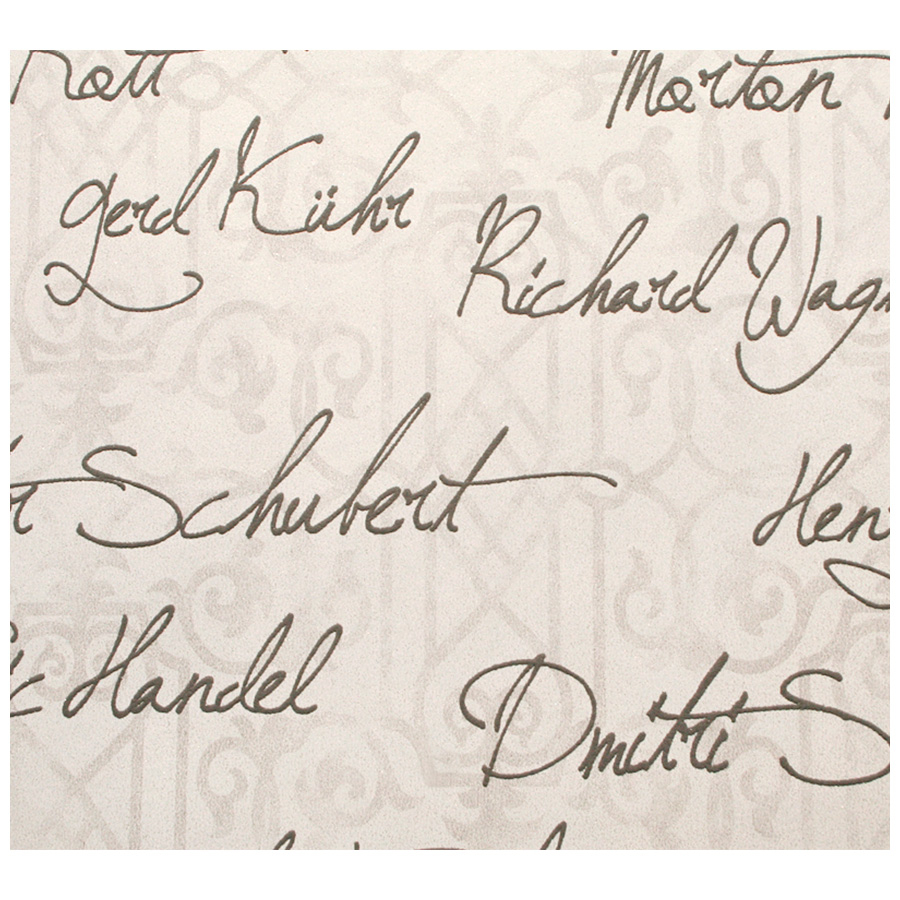 Rott
Morton
Gerd Kühr
Richard Wagn
r Schubert
Hen
c Handel
Dmitri S